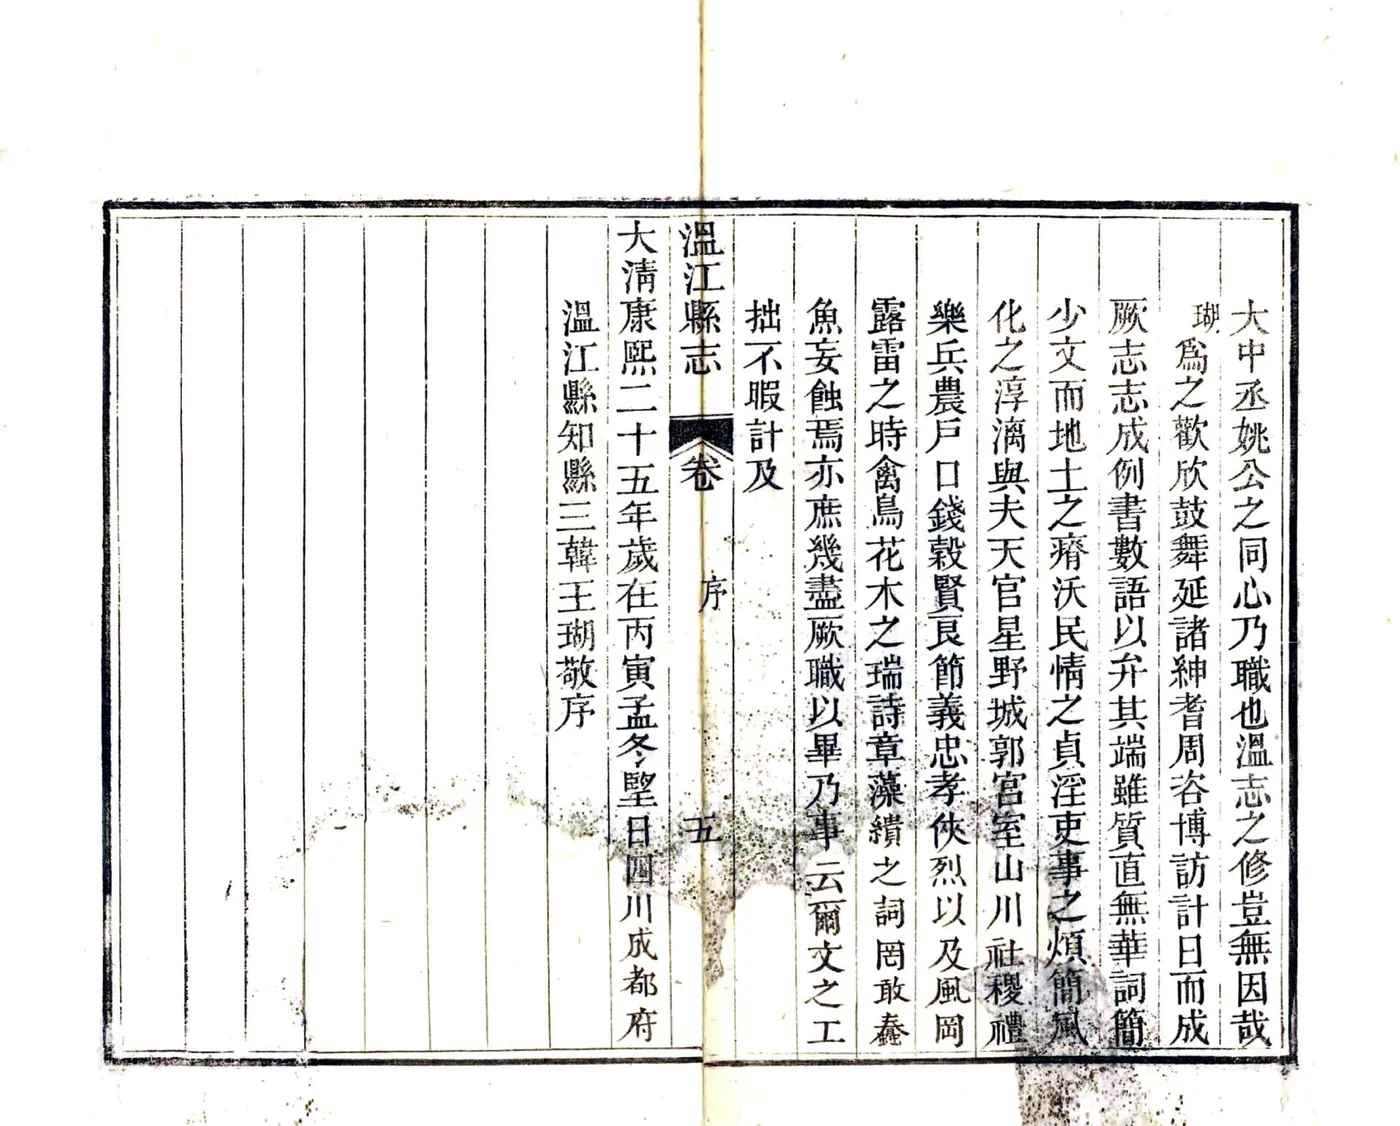 大中丞姚公之同心乃職也溫志之修豈無因哉
瑚爲之歡欣鼓舞延諸紳耆周咨博訪計日而成
厥志志成例書數語以弁其端雖質直無華詞簡
少文而地土之瘠沃民情之貞淫吏事之煩簡風
化之淳漓與夫天官星野城郭宮室山川社稷禮
樂兵農戶口錢穀賢良節義忠孝俠烈以及風岡
露雷之時禽鳥花木之瑞詩章藻繢之詞罔敢蠹
魚妄蝕焉亦庶幾盡厥職以畢乃事云爾文之工
拙不暇計及
溫江縣志 卷 序 五
大淸康熙二十五年歲在丙寅孟冬朢日四川成都府
溫江縣知縣三韓王瑚敬序